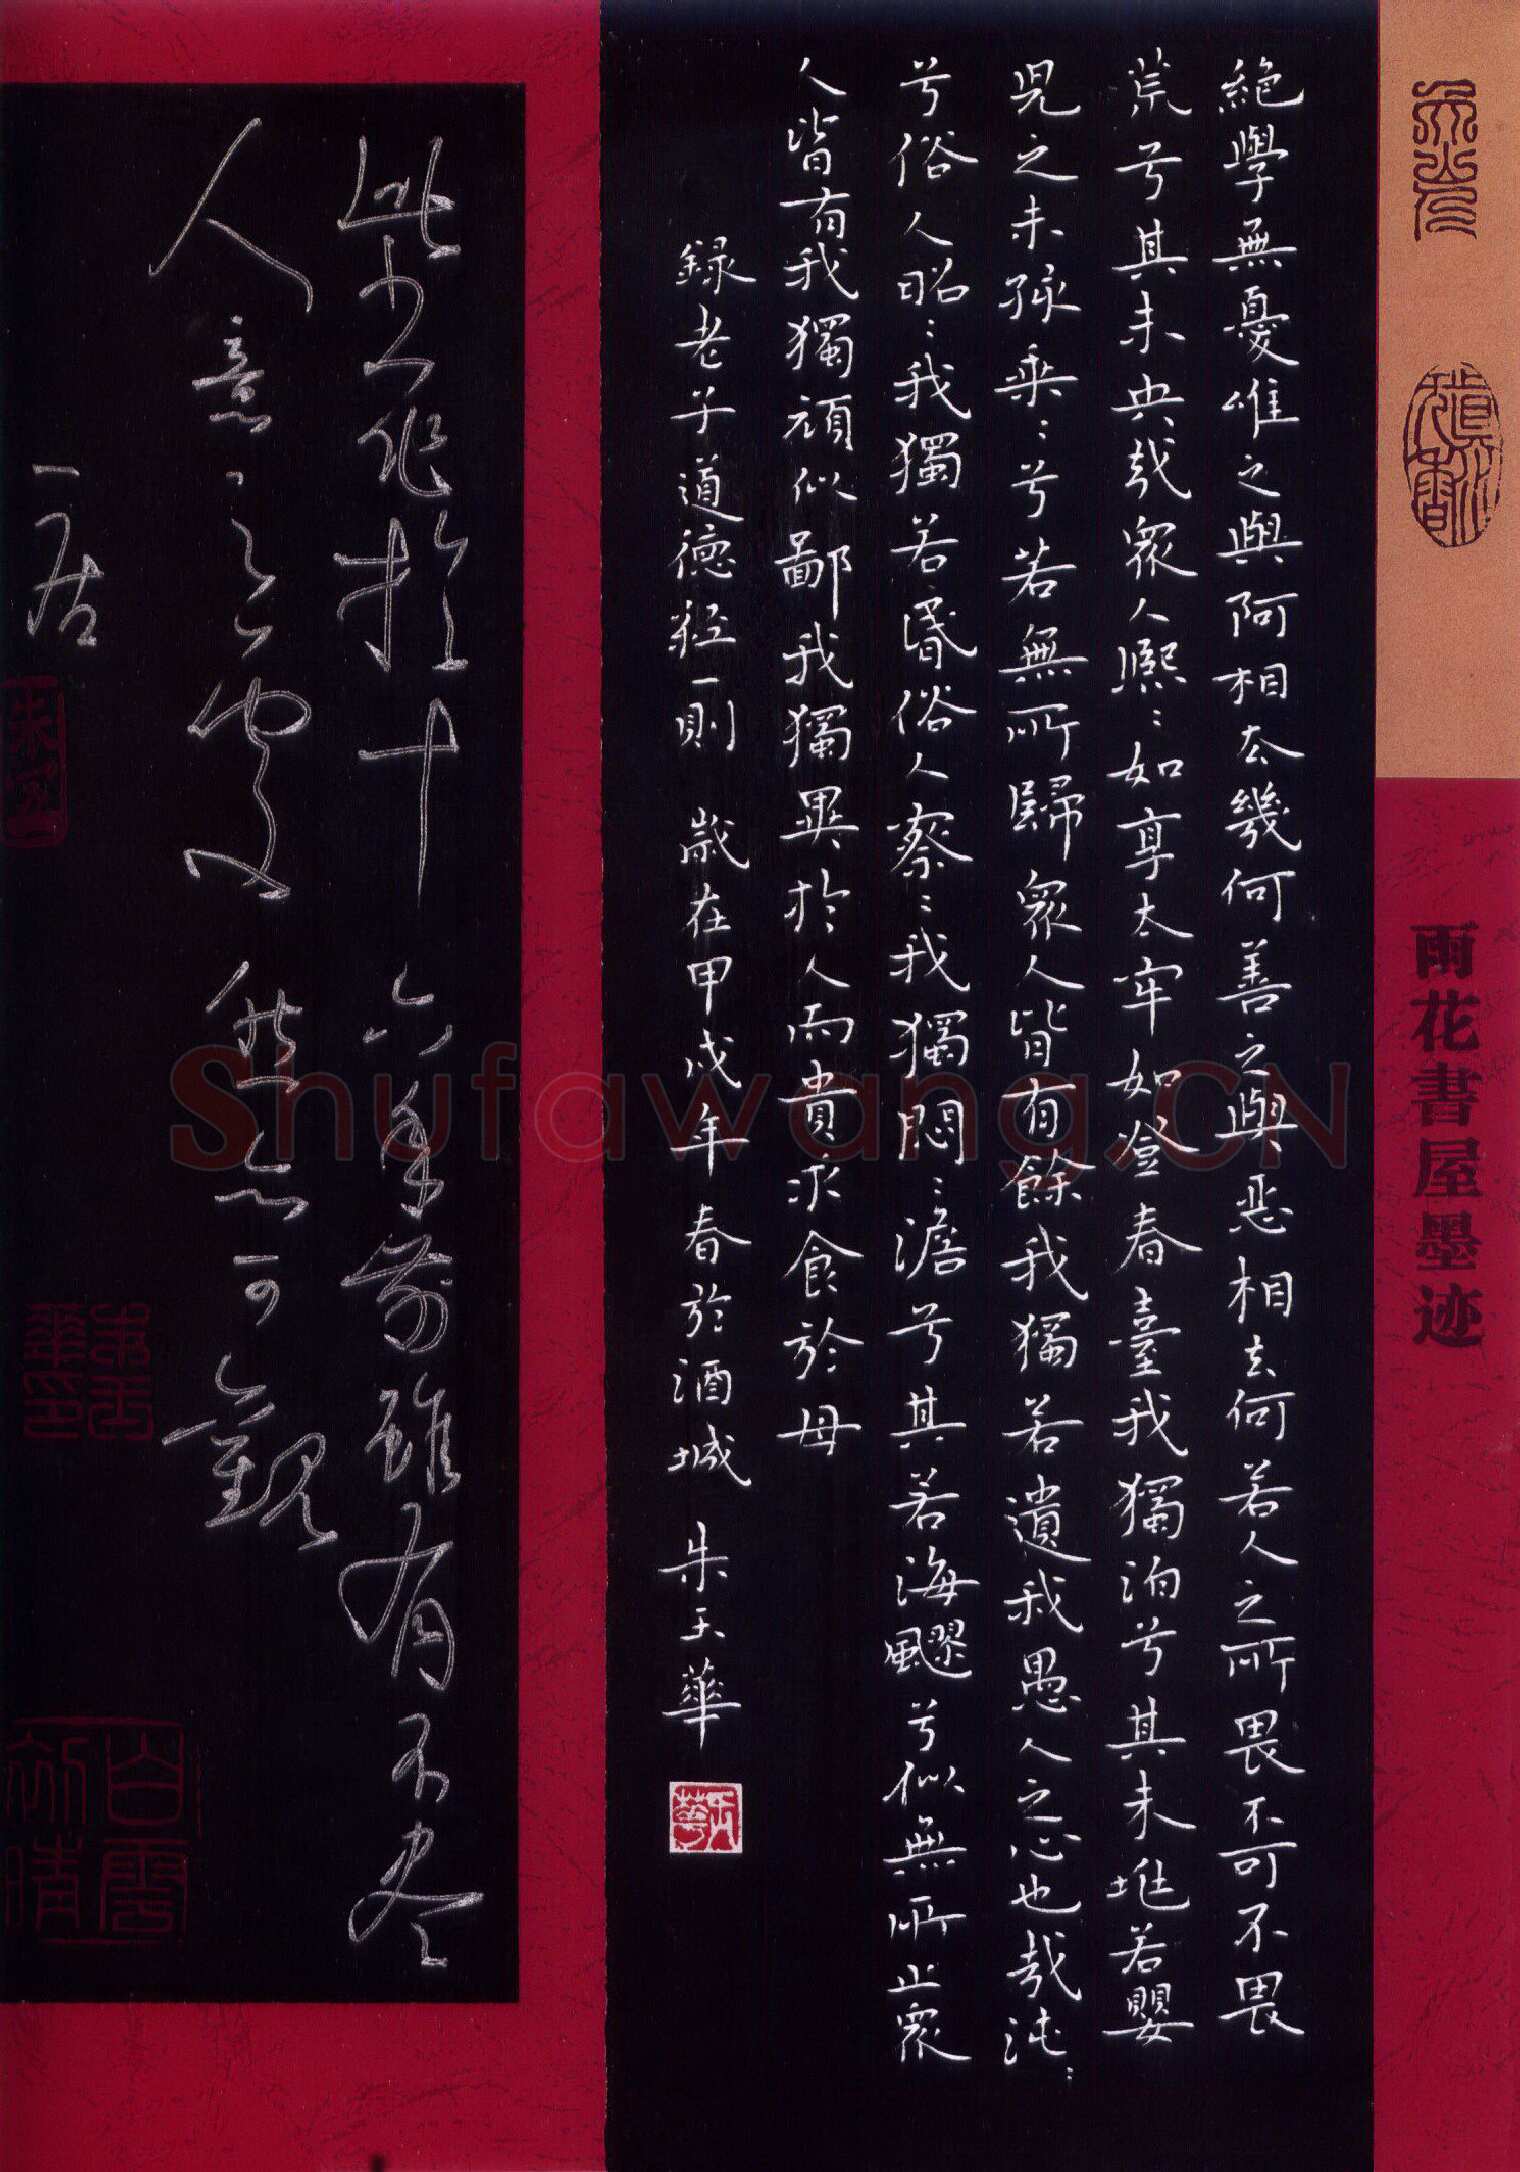 雨花書屋墨迹
絕學無憂唯之與阿相去幾何善之與惡相去何若人之所畏不可不畏
荒兮其未央哉眾人熙〻如享太牢如登春臺我獨泊兮其未兆若嬰
兒之未孩乘〻兮若無所歸眾人皆有餘我獨若遺我愚人之心也哉沌〻
兮俗人昭〻我獨若昏俗人察〻我獨悶〻澹兮其若海飂兮似無所止眾
人皆有我獨頑似鄙我獨異於人而貴求食於母
錄老子道德經一則 歲在甲戌年春於酒城 朱玉華
此書作於十六年前雖有不盡
人意之處然亦可觀
一居
Shufawang.CN